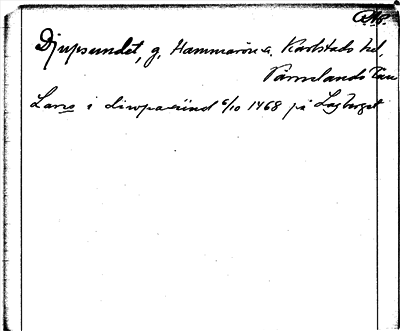 Djupsundet, g. Hammarö sn. Karlstads hd.
Värmlands län
Lars i diwpasund 6/10 1468 på Lagberget